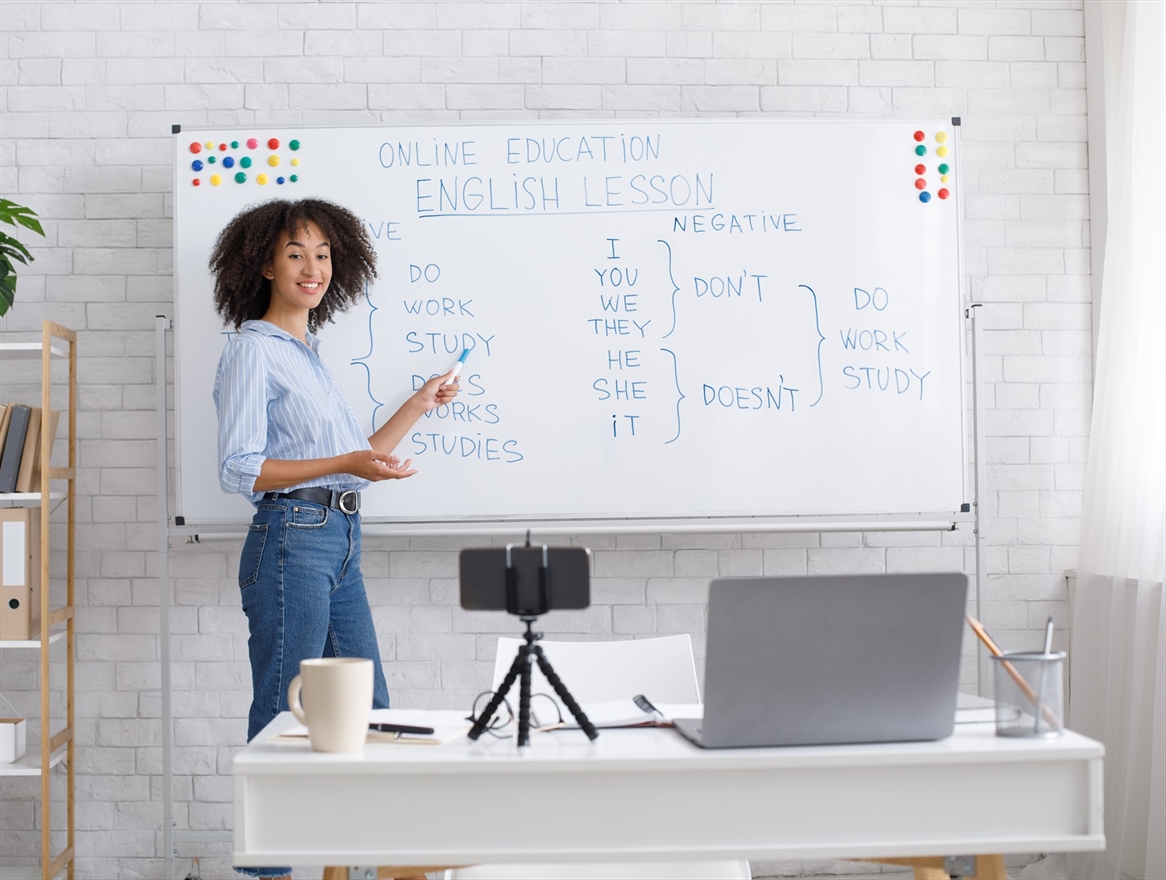 ONLINE EDUCATION
ENGLISH LESSON
DO
WORK
STUDY
DOES
WORKS
STUDIES
NEGATIVE
I
YOU
WE
THEY
HE
SHE
IT
DON'T
DOESN'T
DO
WORK
STUDY